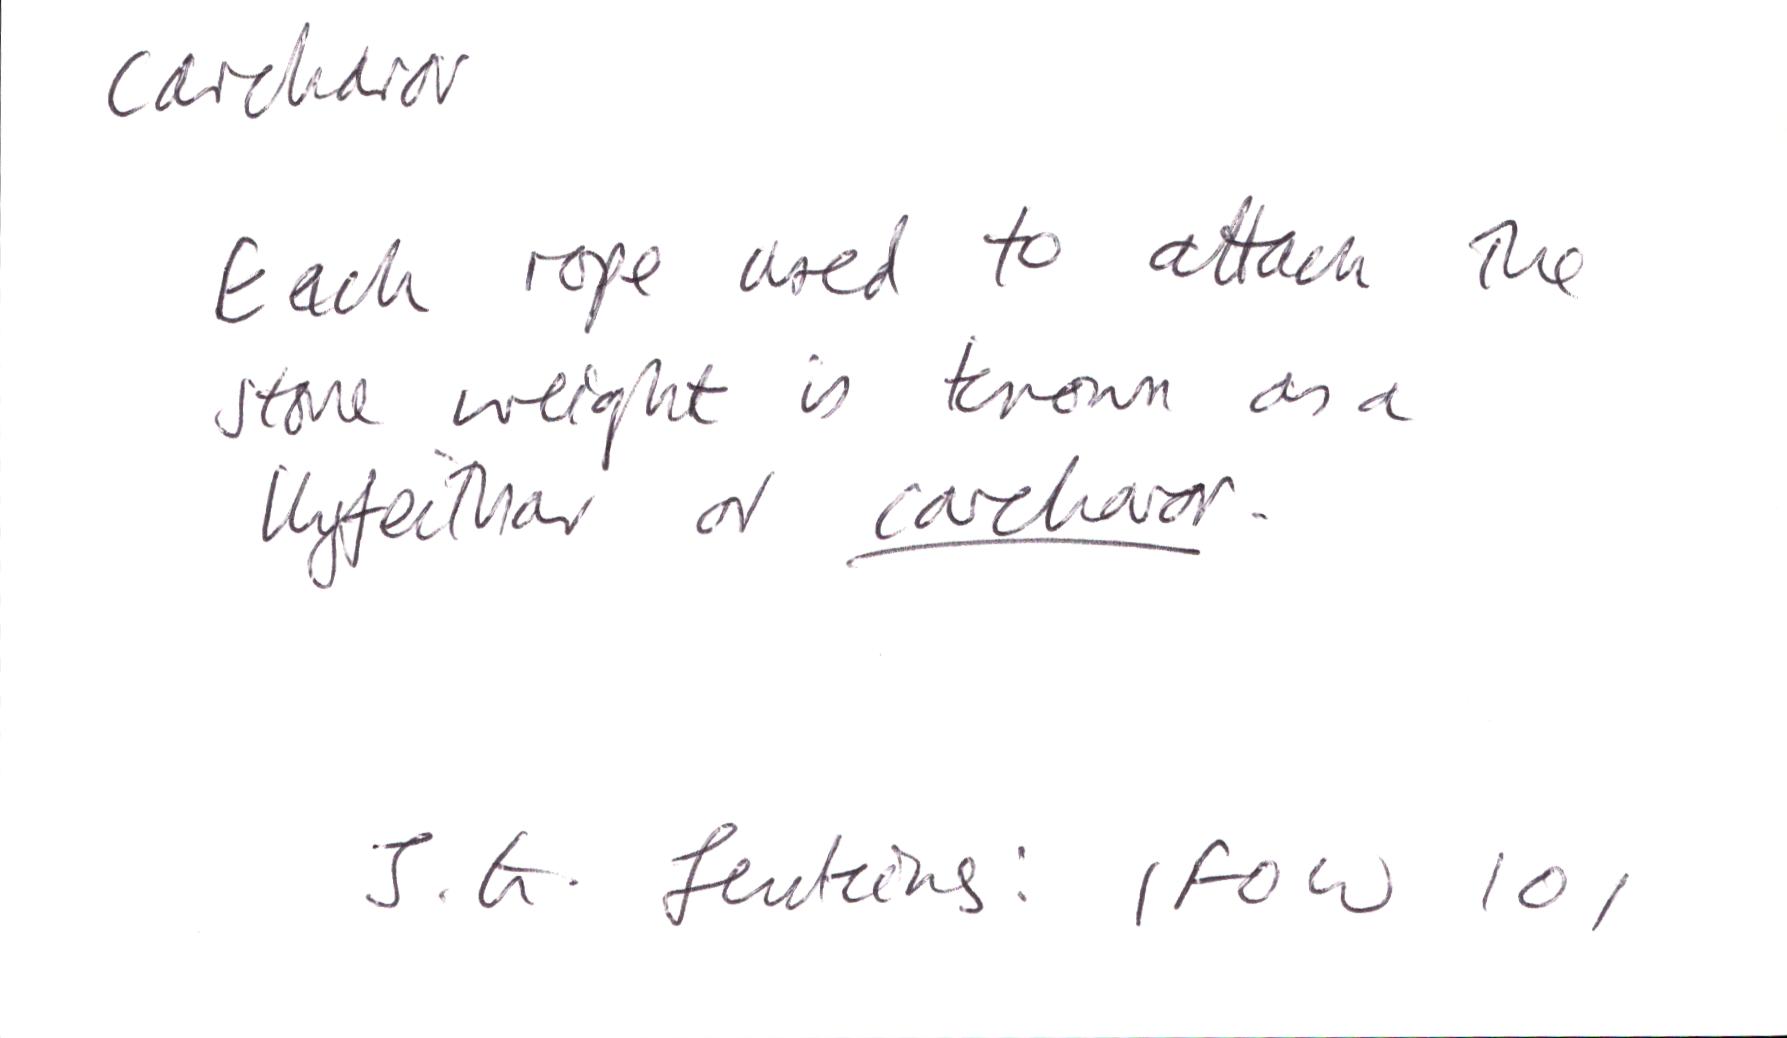 carcharor
Each rope used to attach the
stone weight is known as a
llyfeithar or carcharor.
J. G. Jenkins: IFOW 101